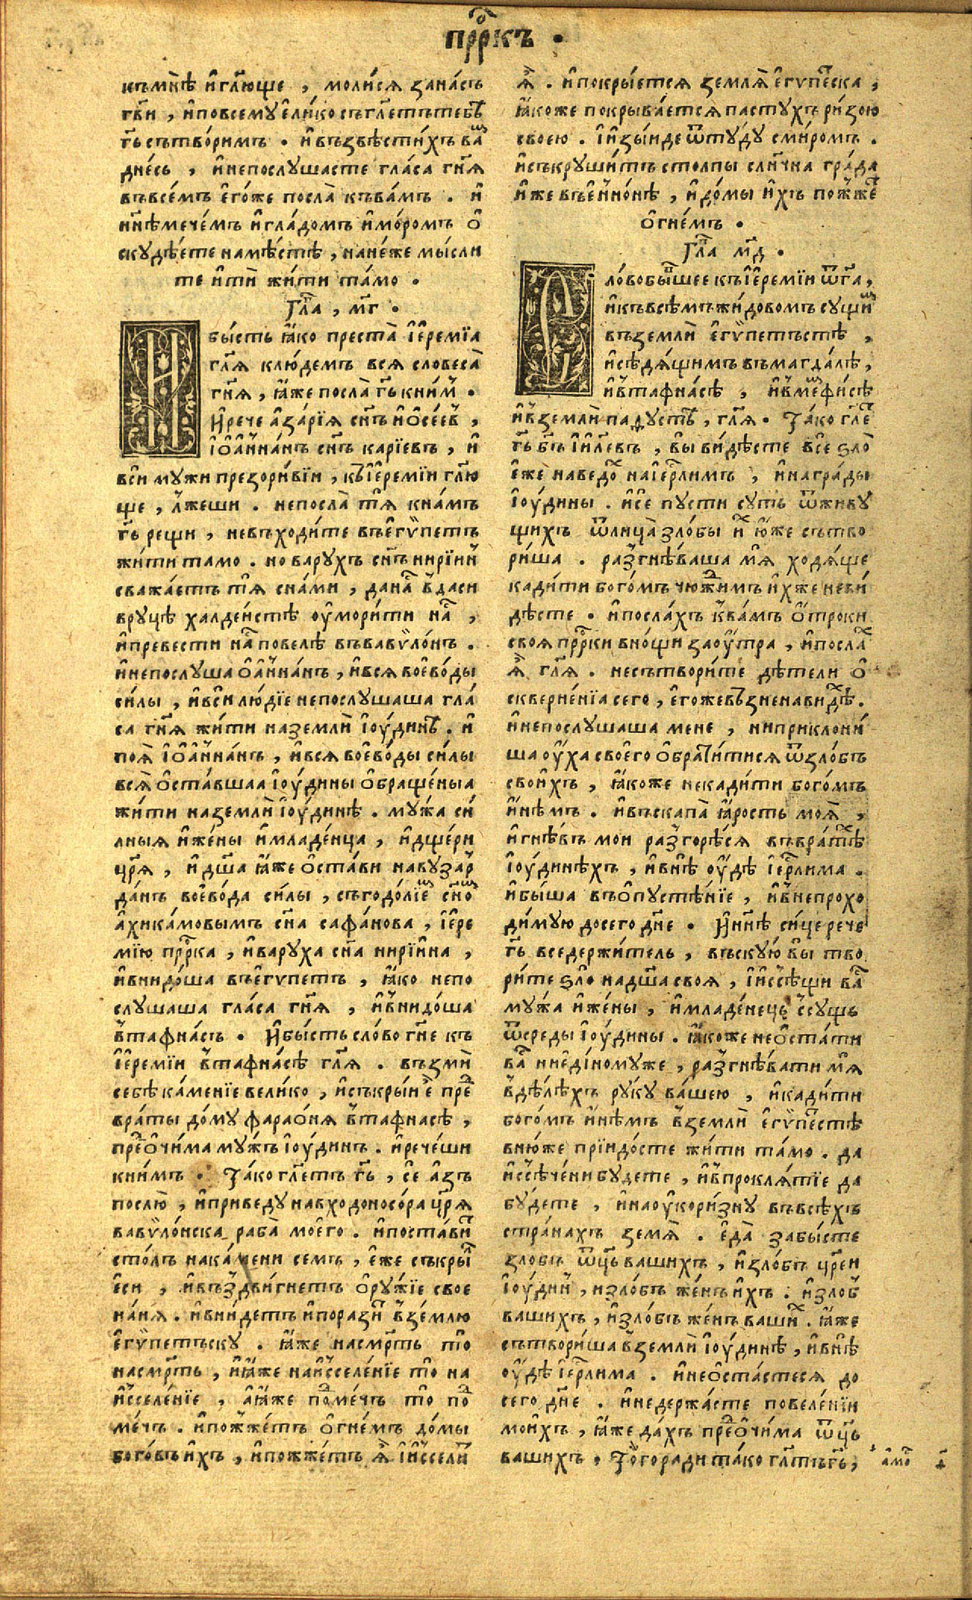 прⷪ҇ркъ .
къмнѣ и҆гл҃юще , моли́сѧ занасъ
гв҃и , и҆повсемꙋ є҆ли́ко съгл҃етъ тебѣ
гь҃ сътвори́мъ . и҆възвѣсти́хъ ваⷨ
дне́сь , и҆непослꙋшасте гла́са гн҃ѧ
въвсе́мъ є҆го́же посла̀ къва́мъ . и҆
нн҃ѣ мече́мъ и҆гла́домъ и҆мо́ромъ ѻ҆
скꙋдѣ́ете намѣ́стѣ , нане́же мы́сли
те и҆тѝ жи́ти та́мо .
Гла҃ , мг҃ .
И бы́сть ꙗ҆́ко преста̀ і҆еремі́а
гл҃ѧ клю́демъ всѧ̀ словеса̀
гн҃ѧ , ꙗ҆́же посла̀ гь҃ книⷨ .
И҆рече а҆за́рїѧ сн҃ъ и҆ѻсе́евъ ,
і҆ѻ҆а́ннанъ сн҃ъ карі́евъ , и҆
вси мꙋжи презори́вїи , къі҆еремі́и гл҃ю
ще , лже́ши . непосла̀ тѧ̀ книмъ
гь҃ рещи , невъходи́те въє҆гѵ́петъ
жи́ти та́мо . но варꙋхъ сн҃ъ нирі́инъ
сважа́етъ тѧ̀ сна́ми , данаⷭ҇ вда́си
врꙋцѣ халде́йстѣ ᲂу҆мори́ти наⷭ҇ ,
и҆превести наⷭ҇ повелѣ въвавѷло́нъ .
и҆непослꙋша ѻ҆а́ннанъ , и҆всѧ̀ воево́ды
си́лы , и҆вси лю́дїе непослꙋшаша гла́
са гн҃ѧ жи́ти наземлѝ і҆ꙋ́динѣ . и҆
поѧ̀ і҆ѻ҆а́ннанъ , и҆всѧ̀ воево́ды си́лы
всѧ̀ ѻ҆ста́вшаа і҆ꙋ́дины ѻ҆браще́ныа
жи́ти наземлѝ і҆ꙋ́динѣ . мꙋжа си́
лныѧ и҆же́ны и҆младе́нца , и҆дще́ри
цр҃ѧ , и҆дш҃а ꙗ҆́же ѻ҆ста́ви навꙋзаⷬ҇
да́нъ воево́да си́лы , съгодо́лїеⷨ сн҃оⷨ
а҆хика́мовымъ сн҃а сафа́нова , і҆ере
мі́ю прⷪ҇рка , и҆варꙋха сн҃а нирі́ина ,
и҆внидо́ша въє҆гѵпетъ , ꙗ҆́ко непо
слꙋшаша гла́са гн҃ѧ , и҆внидо́ша
втафна́съ . И҆бы́сть сло́во гн҃е къ
і҆еремі́и втафна́сѣ гл҃ѧ . възмѝ
себѣ ка́менїе вели́ко , и҆съкры́й є҆̀ преⷣ
враты̀ до́мꙋ фараѻ́нѧ втафна́сѣ ,
преⷣѻ҆чи́ма мꙋжъ і҆ꙋ́динъ . и҆рече́ши
кни́мъ . Та́ко гл҃етъ гь҃ , се а҆́зъ
послю̀ , и҆приведꙋ навходоно́сора цр҃ѧ
вавѷло́нска раба̀ моего̀ . и҆поста́виⷮ
сто́лъ нака́мени семъ , є҆́же съкрыⷧ҇
є҆сѝ , и҆въздви́гнетъ ѻ҆рꙋ́жїе свое
на́нѧ . и҆вни́детъ и҆порази́тъ зе́млю
є҆гѵ́петъскꙋ . ꙗ҆́же насмр҃ть то̀
насмр҃ть , и҆ꙗ҆́же наи҆сселе́нїе то̀ на
и҆сселе́нїе , а҆ꙗ҆́же поⷣме́чъ то̀ поⷣ
ме́чъ . и҆пожже́тъ ѻ҆гне́мъ до́мы
бого́въ и҆́хъ , и҆пожже́тъ ѧ҆̀ и҆и҆ссели́тъ
ѧ҆̀ . и҆покры́етсѧ землѧ̀ є҆гѵпⷭ҇еска ,
ꙗ҆́коже покрыва́етсѧ пастꙋ́хъ ри́зою
своею . и҆изы́иде ѿтꙋ́дꙋ сми́ромъ .
и҆съкрꙋши́тъ столпы̀ слн҃чна гра́да
и҆́же въе҆ннѡ́нѣ , и҆до́мы и҆́хъ пожже́ⷮ
ѻ҆гне́мъ .
Гла҃ мд҃ .
Сло́во бы́вшее къі҆еремі́и ѿга҃ ,
и҆къвсѣ́мъ жи́довомъ сꙋщиⷨ
въземлѝ є҆гѵ́петъстѣ ,
и҆сѣдѧ́щимъ въмагда́лѣ ,
и҆втафна́сѣ , и҆вмеⷨфи́сѣ
и҆вземлѝ падꙋстѣ , гл҃ѧ . Та́ко гл҃еⷮ
гь҃ бг҃ъ і҆и҃левъ , вы̀ видѣ́сте все ѕло̀
є҆́же наведо́х наі҆ерⷭ҇лимъ , и҆награ́ды
і҆ꙋ́дины . и҆се пꙋсти сꙋ́ть ѿживꙋ
щихъ ѿлица̀ зло́бы и҆́х ю҆́же сътво
ри́ша . разгнѣ́ваша мѧ̀ ходѧ́ще
кади́ти бого́мъ чюжи́мъ и҆́хже невѣ
дѣсте . и҆посла́хъ квамъ ѻ҆́троки
своѧ прⷪ҇рки вно́щи заᲂу҆́тра , и҆посла́х
ѧ҆̀ гл҃ѧ . несътвори́те дѣ́тели ѻ҆
скверне́нїа сего , є҆го́же възненави́дѣⷯ .
и҆непослꙋшаша мене , ниприклони́
ша ᲂу҆́ха своего̀ ѻ҆брати́тисѧ ѿзло́бъ
свои́хъ , ꙗ҆́коже некади́ти бого́мъ
и҆нѣмъ . и҆въскапа̀ ꙗ҆́рость моѧ̀ ,
и҆гнѣ́въ мои разгорѣ́сѧ въвратѣⷯ
і҆ꙋ́динѣхъ , и҆внѣ̀ ᲂу҆́дѣ і҆ерⷭ҇лима .
и҆бы́ша въѻ҆пꙋстѣ́нїе , и҆внепрохо
ди́мꙋю досего дн҃е . И҆нн҃ѣ си́це рече
гь҃ вседержи́тель , въскꙋ́ю вы̀ тво
ри́те ѕло̀ надш҃а своѧ , і҆и҆ссѣ́щи ваⷭ҇
мꙋ́жа и҆же́ны , и҆младе́нецъ ссꙋ́щъ
ѿсреды̀ і҆ꙋ́дины . ꙗ҆́коже неѻ҆ста́ти
ваⷭ҇ ниеди́номꙋже , разгнѣ́вати мѧ̀
вдѣ́лѣхъ рꙋкꙋ̀ ва́шею , и҆кади́ти
бого́мъ и҆нѣмъ вземлѝ є҆гѵ́пестѣ
вню́же прїидо́сте жи́ти та́мо . да
и҆ссѣ́чени бꙋ́дете , и҆впроклѧ́тїе да
бꙋ́дете , и҆наᲂу҆кори́знꙋ въвсѣ́хъ
стра́нахъ земѧ̀ . є҆да̀ забы́сте
зло́бъ ѿц҃ъ ва́шихъ , и҆зло́бъ цр҃еи
і҆ꙋ́динъ , и҆зло́бъ же́нъ и҆́хъ . и҆злоб
ва́шихъ , и҆зло́бъ же́нъ ва́шиⷯ . ꙗ҆́же
сътвори́ша вземлѝ і҆ꙋ́динѣ , и҆внѣ̀
ᲂу҆́дѣ і҆ерⷭ҇лима . и҆неѻ҆ста́стесѧ до
сего дн҃е . и҆недержа́сте повелѣ́нїи
мои́хъ , ꙗ҆́же да́хъ преⷣѻ҆чи́ма ѿц҃ъ
ва́шихъ . Того́ради та́ко гл҃етъ гь҃ ,
а҆мо́ⷭ